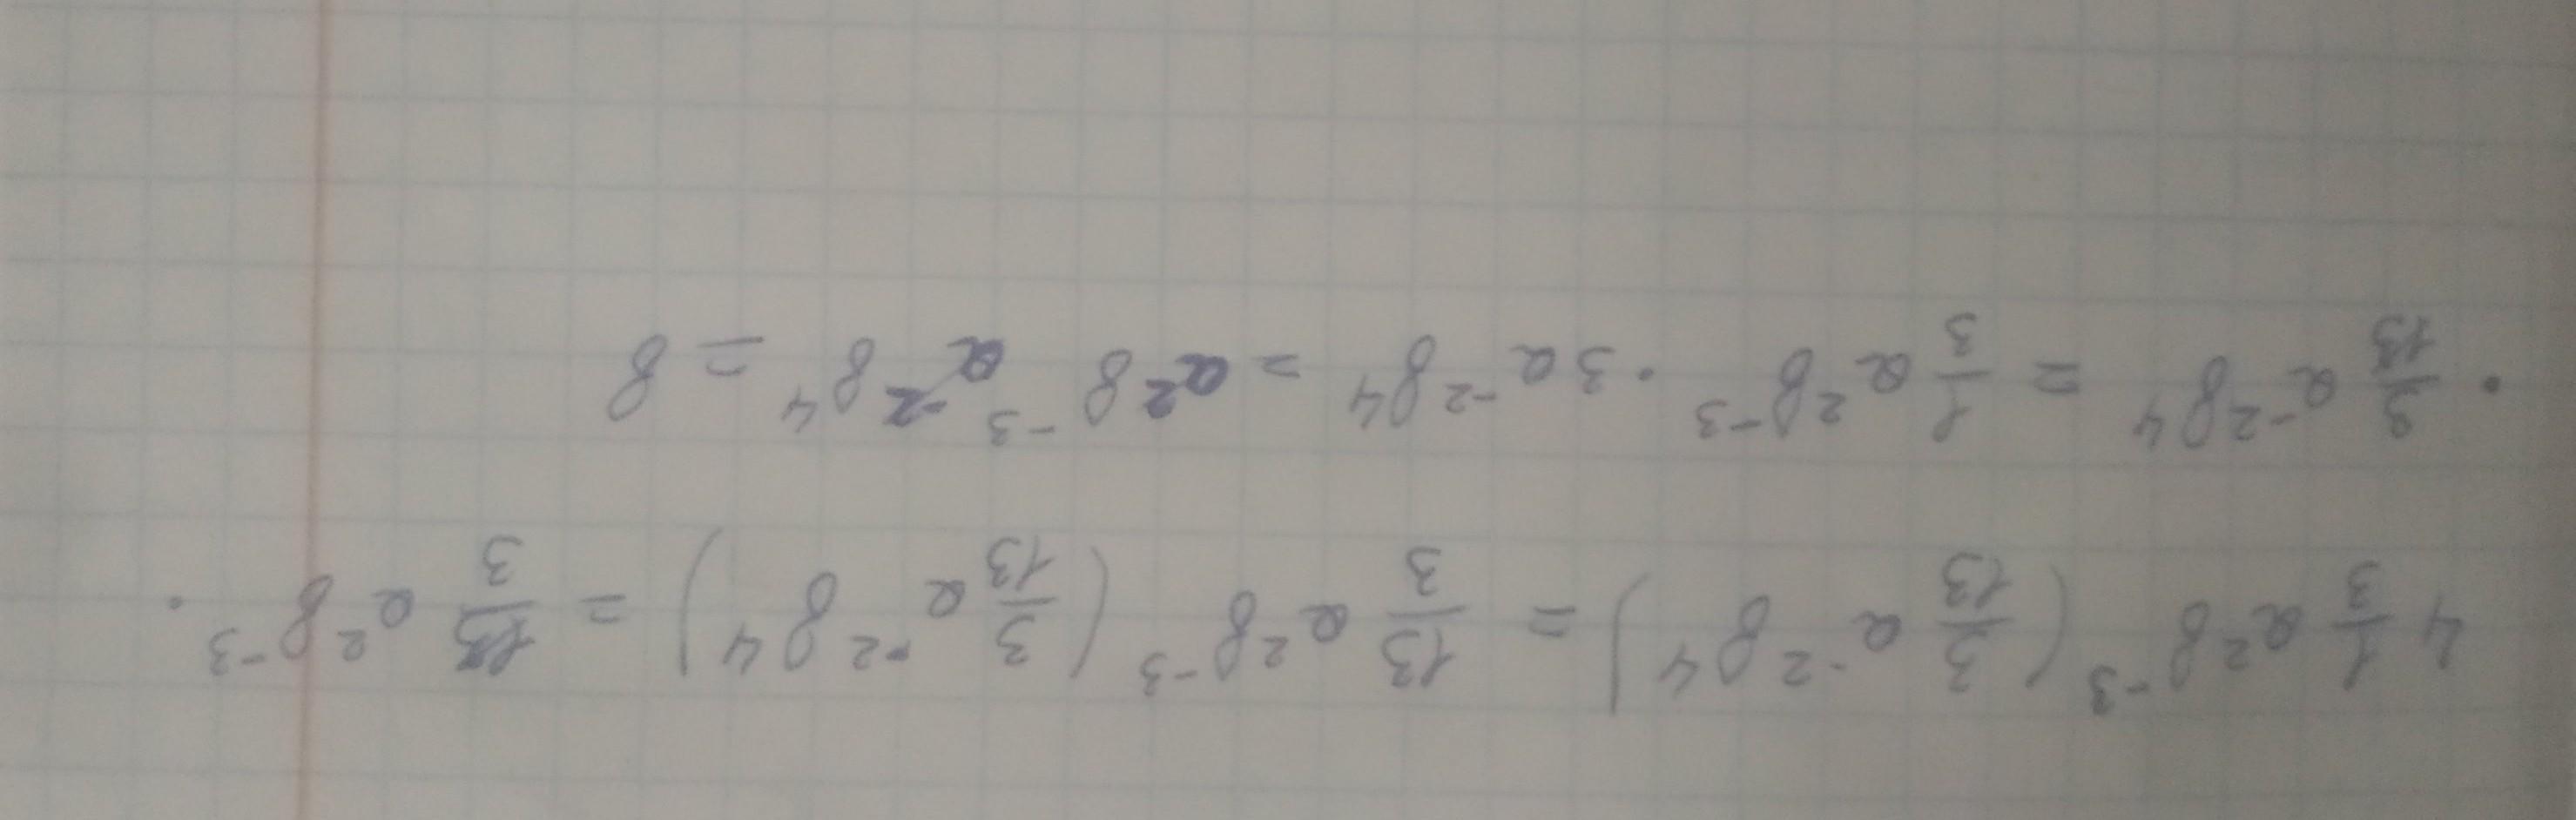 4 1/3 a²b⁻³ (3/13 a⁻²b⁴) = 13/3 a²b⁻³ (3/13 a⁻²b⁴) = 13/3 a²b⁻³ ·
· 3/13 a⁻²b⁴ = 1/3 a²b⁻³ · 3a⁻²b⁴ = a²b⁻³ a⁻²b⁴ = b